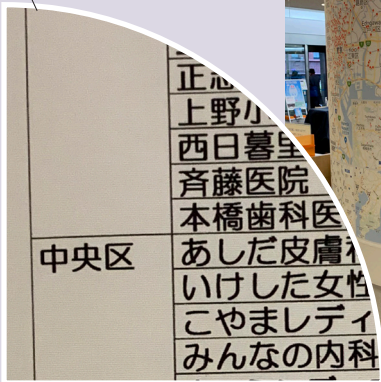 上野小
西日暮里
斉藤医院
本橋歯科医
中央区
あしだ皮膚科
いけした女性
こやまレディ
みんなの内科